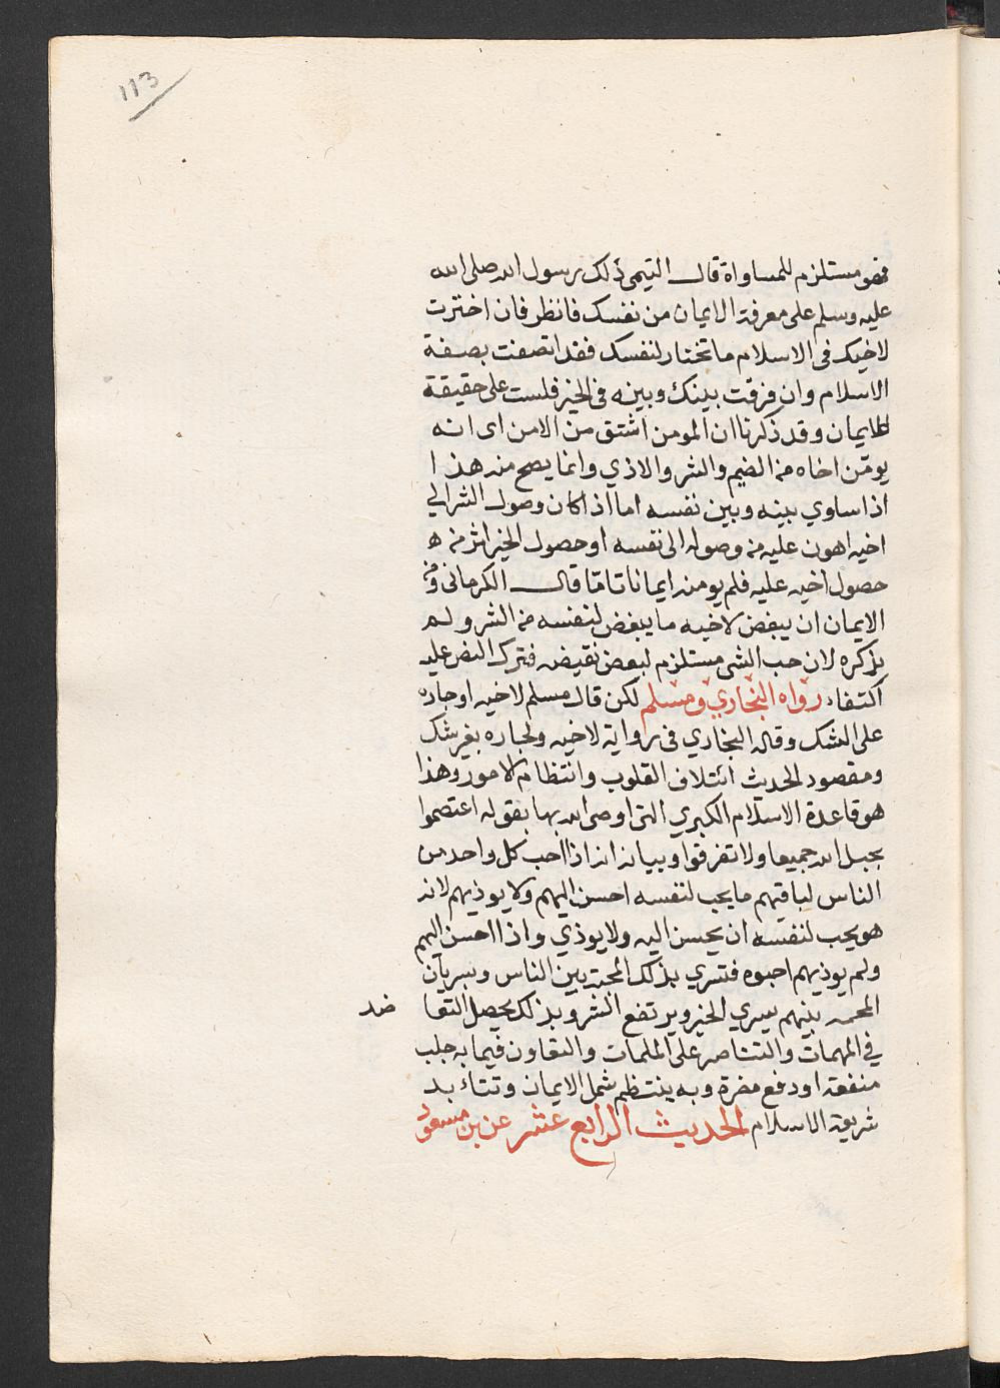 113
فهو مستلزم للمساواة قال التيمى ذلك رسول الله صلى الله
عليه وسلم على معرفة الايمان من نفسك فانظر فان اخترت
لاخيك فى الاسلام ما تختار لنفسك فقد اتصفت بصفة
الاسلام وان فرقت بينك وبينه فى الخير فلست على حقيقة
الايمان وقد ذكرنا ان المومن اشتق من الامن اى انه
يومن اخاه من الضيم والشر والاذي وانما يصح منه هذا
اذا ساوي بينه وبين نفسه اما اذا كان وصول الشر الي
اخيه اهون عليه من وصوله الى نفسه او حصول الخير اثر من
حصول اخيه عليه فلم يومن ايمانا تاما قال الكرمانى ومن
الايمان ان يبغض لاخيه ما يبغض لنفسه من الشر ولم
يذكره لان حب الشى مستلزم لبغض نقيضه فترك النص عليه
اكتفاء رواه البخاري ومسلم لكن قال مسلم لاخيه او جاره
على الشك وقال البخاري فى رواية لاخيه ولجاره بغير شك
ومقصود الحديث ائتلاف القلوب وانتظام الامور وهذا
هو قاعدة الاسلام الكبري التى اوصى الله بها بقوله اعتصموا
بحبل الله جميعا ولا تفرقوا وبيانه انه اذا احب كل واحد من
الناس لباقيهم ما يحب لنفسه احسن اليهم ولا يوذيهم لانه
هو يحب لنفسه ان يحسن اليه ولا يوذي واذا احسن اليهم
ولم يوذيهم احبوه فتسري بذلك المحبة بين الناس وبسريان
المحبة بينهم يسري الخير ويرتفع الشر وبذلك يحصل التعا ضد
في المهمات والتناصر على الملمات والتعاون فيما به جلب
منفعة او دفع مضرة وبه ينتظم شمل الايمان وتتائد
شريعة الاسلام الحديث الرابع عشر عن بن مسعود